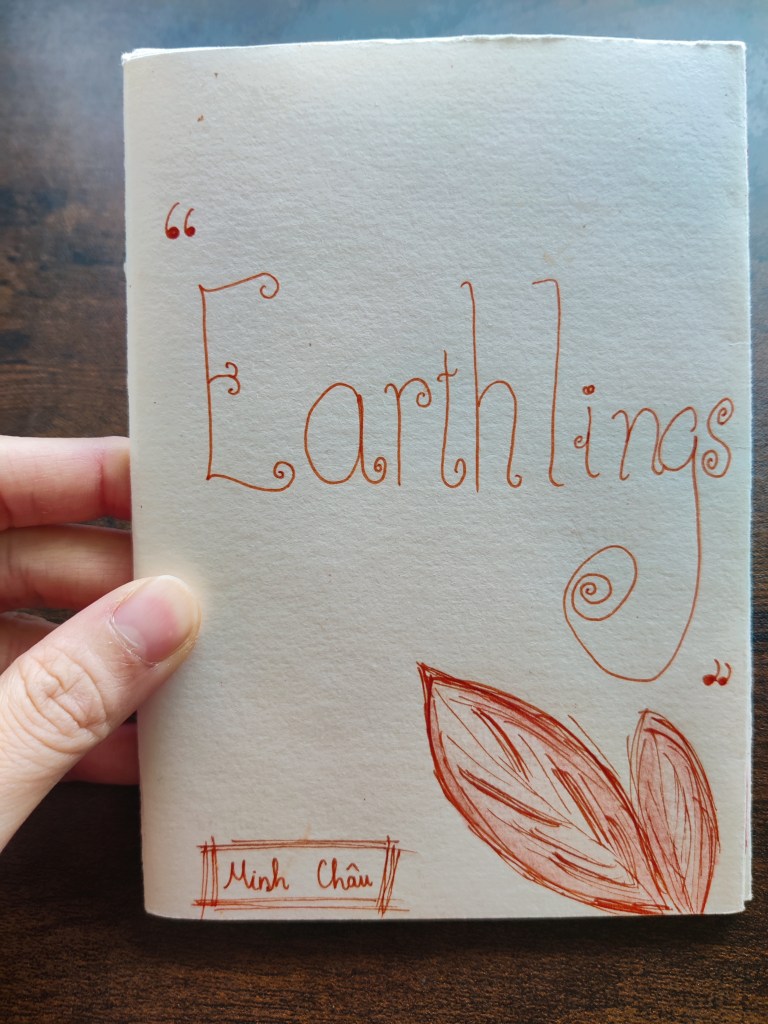 “Earthlings”
Minh Châu